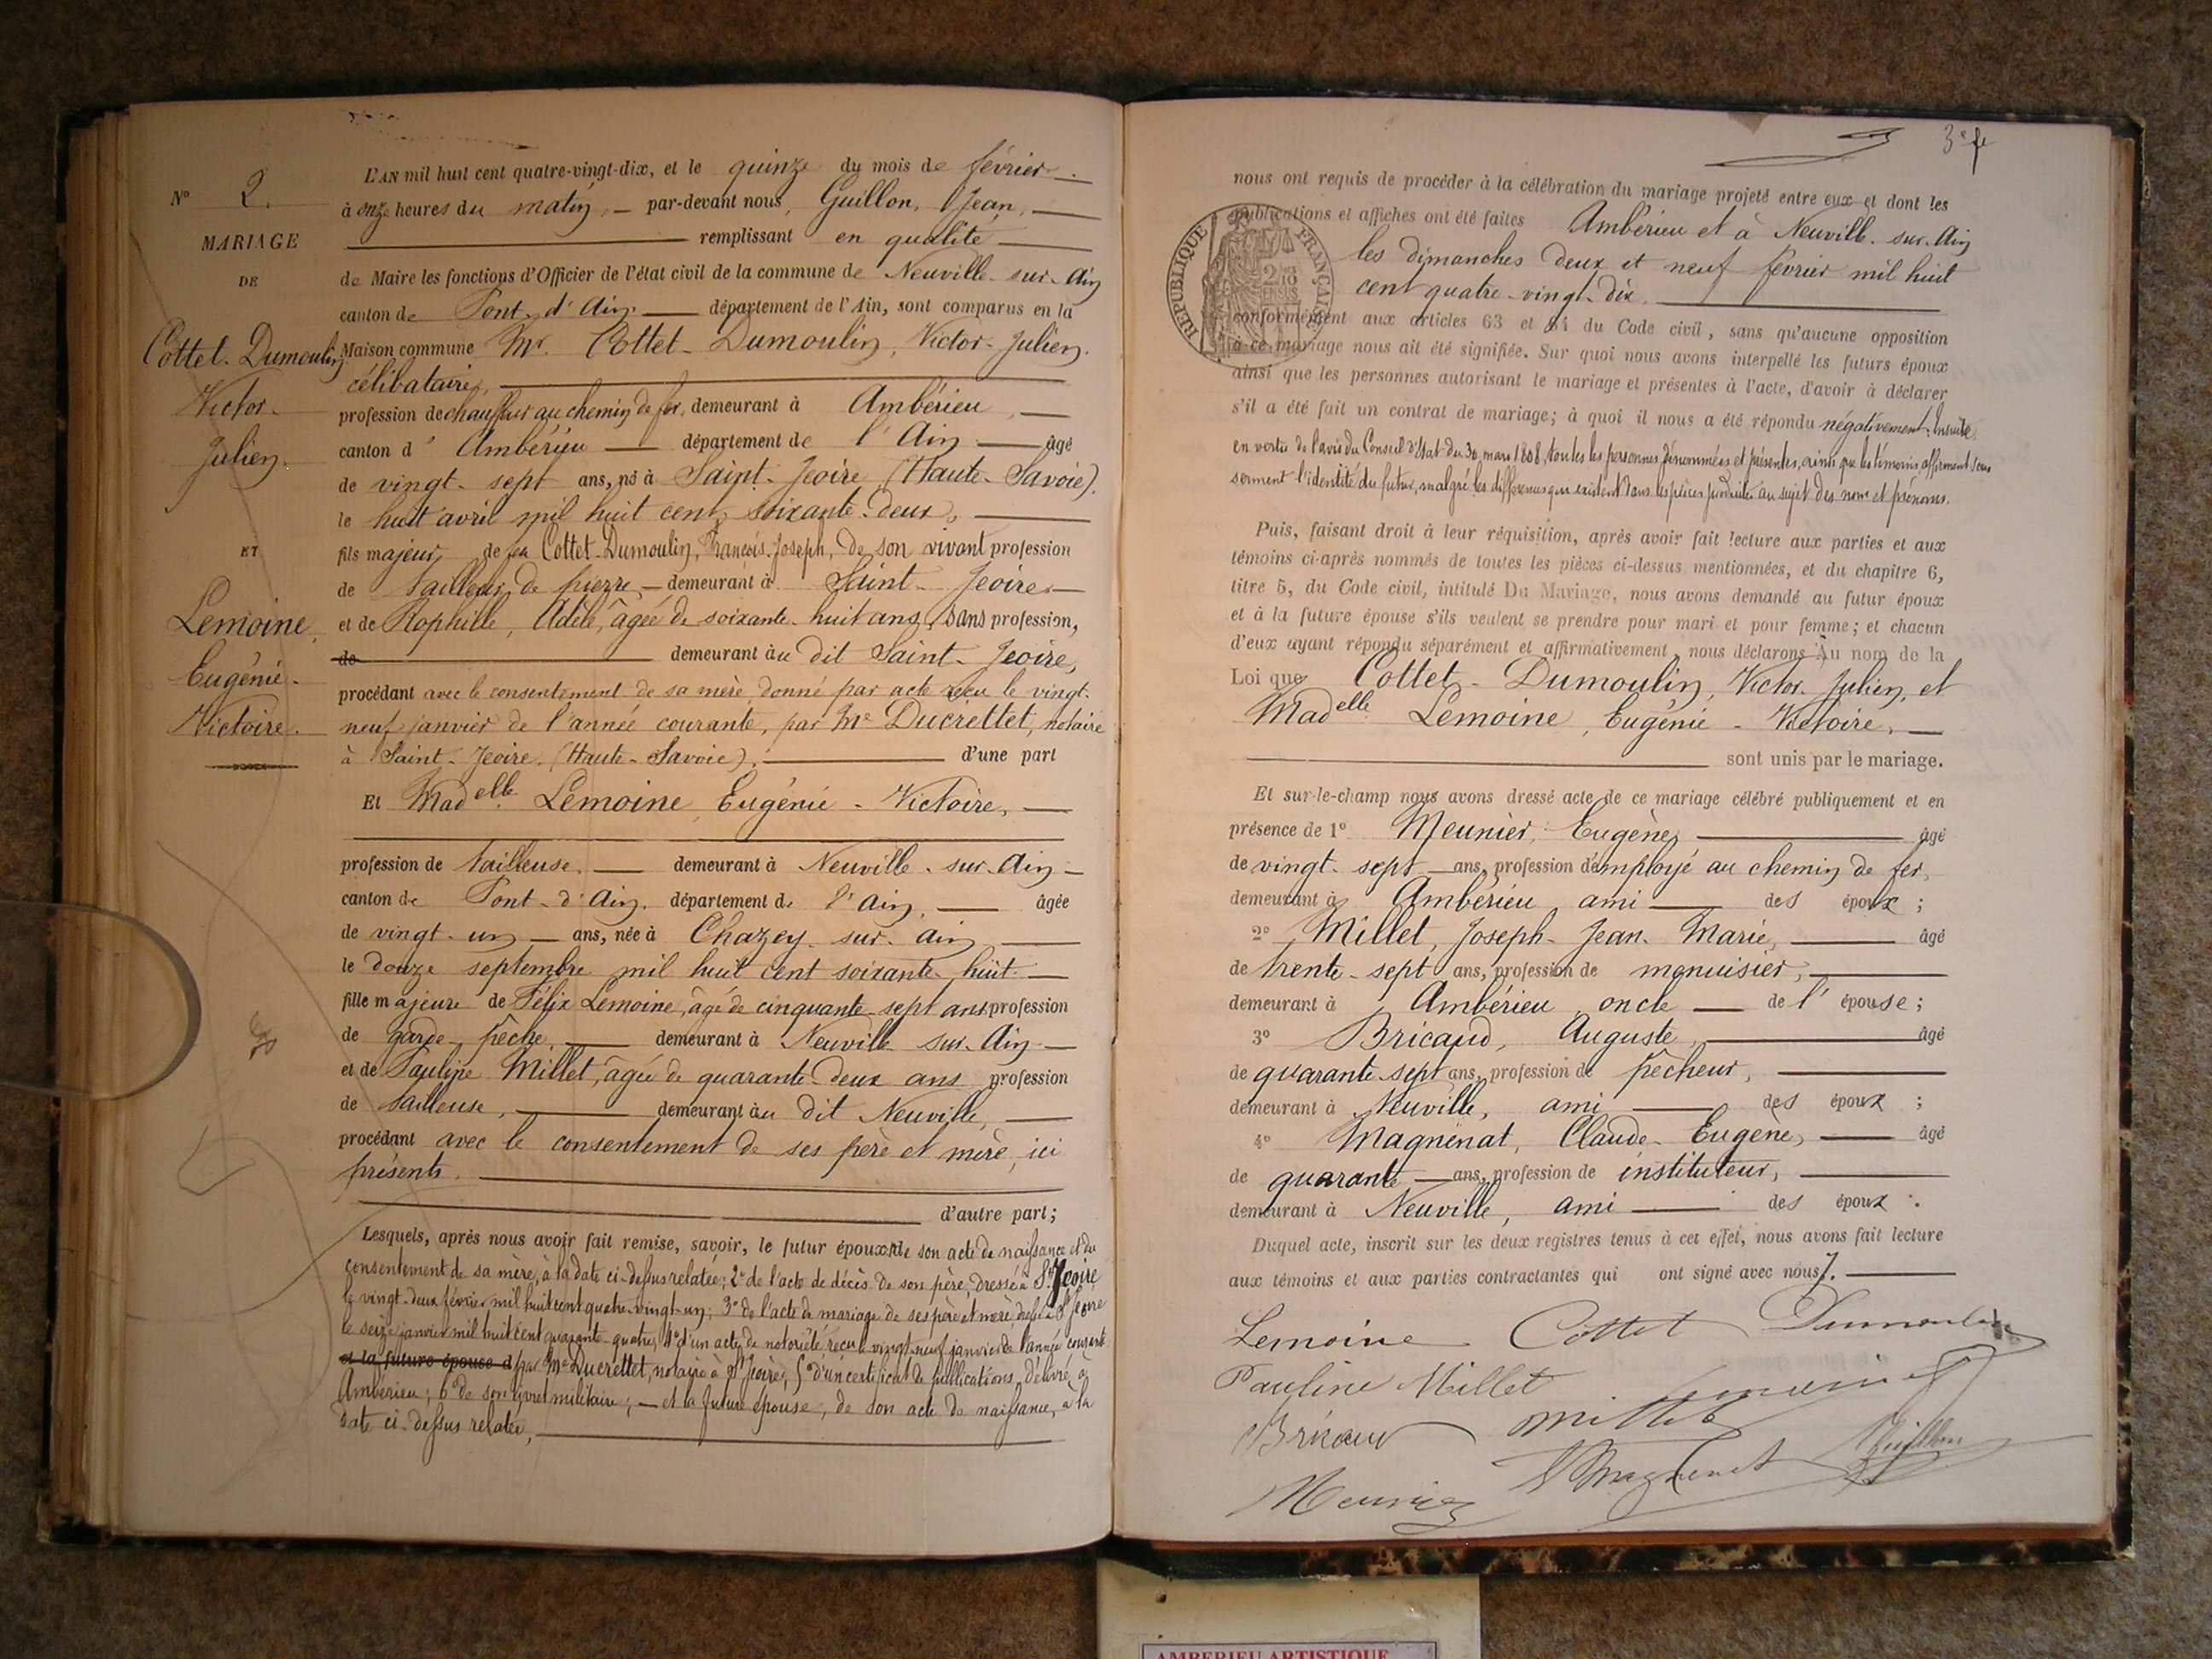 N° 2.
MARIAGE
DE
Cottet-Dumoulin
Victor-
Julien.
ET
Lemoine,
Eugénie-
Victoire.
L'AN mil huit cent quatre-vingt-dix, et le quinze du mois de février
à onze heures du matin, par-devant nous, Guillon, Jean,
remplissant en qualité
de Maire les fonctions d'Officier de l'état civil de la commune de Neuville-sur-Ain
canton de Pont-d'Ain département de l'Ain, sont comparus en la
Maison commune Mr. Cottet-Dumoulin, Victor-Julien,
célibataire,
profession de chauffeur au chemin de fer, demeurant à Ambérieu,
canton d'Ambérieu département de l'Ain âgé
de vingt-sept ans, né à Saint-Jeoire (Haute-Savoie),
le huit avril mil huit cent soixante-deux,
fils majeur de feu Cottet-Dumoulin, François-Joseph, de son vivant profession
de tailleur de pierre, demeurant à Saint-Jeoire
et de Rophille, Adèle, âgée de soixante-huit ans, sans profession,
de demeurant au dit Saint-Jeoire,
procédant avec le consentement de sa mère donné par acte reçu le vingt-
neuf janvier de l'année courante, par Me Ducrettet, notaire
à Saint-Jeoire (Haute-Savoie), d'une part
Et Madelle Lemoine, Eugénie-Victoire,
profession de tailleuse demeurant à Neuville-sur-Ain
canton de Pont-d'Ain, département de l'Ain, âgée
de vingt-un ans, née à Chazey-sur-Ain
le douze septembre mil huit cent soixante-huit
fille majeure de Félix Lemoine, âgé de cinquante-sept ans profession
de garde-pêche, demeurant à Neuville-sur-Ain
et de Pauline Millet, âgée de quarante-deux ans profession
de tailleuse, demeurant au dit Neuville,
procédant avec le consentement de ses père et mère, ici
présents.
d'autre part;
Lesquels, après nous avoir fait remise, savoir, le futur époux, de son acte de naissance et du
consentement de sa mère, à la date ci-dessus relatée; 2° de l'acte de décès de son père, dressé à St Jeoire
le vingt-deux février mil huit cent quatre-vingt-un; 3° de l'acte de mariage de ses père et mère, dressé à St Jeoire
le seize janvier mil huit cent quarante-quatre, 4° d'un acte de notoriété, reçu le vingt-neuf janvier de l'année courante
et la future épouse d par Me Ducrettet, notaire à St Jeoire; 5° d'un certificat de publications délivré à
Ambérieu; 6° de son livret militaire; et la future épouse, de son acte de naissance, à la
date ci-dessus relatée,
3e f
nous ont requis de procéder à la célébration du mariage projeté entre eux et dont les
publications et affiches ont été faites Ambérieu et à Neuville-sur-Ain
les dimanches deux et neuf février mil huit
cent quatre-vingt-dix
RÉPUBLIQUE FRANÇAISE
conformément aux articles 63 et 64 du Code civil, sans qu'aucune opposition
à ce mariage nous ait été signifiée. Sur quoi nous avons interpellé les futurs époux
ainsi que les personnes autorisant le mariage et présentes à l'acte, d'avoir à déclarer
s'il a été fait un contrat de mariage; à quoi il nous a été répondu négativement. Ensuite,
en vertu de l'avis du Conseil d'Etat du 30 mars 1808, toutes les personnes dénommées et présentes, ainsi que les témoins, affirment sous
serment l'identité du futur, malgré les différences qui existent dans les pièces produites au sujet des nom et prénoms.
Puis, faisant droit à leur réquisition, après avoir fait lecture aux parties et aux
témoins ci-après nommés de toutes les pièces ci-dessus mentionnées, et du chapitre 6,
titre 5, du Code civil, intitulé Du Mariage, nous avons demandé au futur époux
et à la future épouse s'ils veulent se prendre pour mari et pour femme; et chacun
d'eux ayant répondu séparément et affirmativement, nous déclarons Au nom de la
Loi que Cottet-Dumoulin, Victor-Julien, et
Madelle Lemoine, Eugénie-Victoire,
sont unis par le mariage.
Et sur-le-champ nous avons dressé acte de ce mariage célébré publiquement et en
présence de 1° Meunier, Eugène, âgé
de vingt-sept ans, profession d'employé au chemin de fer,
demeurant à Ambérieu, ami des époux;
2° Millet, Joseph-Jean-Marie, âgé
de trente-sept ans, profession de menuisier,
demeurant à Ambérieu, oncle de l'épouse;
3° Bricaud, Auguste, âgé
de quarante-sept ans, profession de pêcheur,
demeurant à Neuville, ami des époux;
4° Magnenat, Claude-Eugène, âgé
de quarante ans, profession de instituteur,
demeurant à Neuville, ami des époux.
Duquel acte, inscrit sur les deux registres tenus à cet effet, nous avons fait lecture
aux témoins et aux parties contractantes qui ont signé avec nous.
Lemoine Cottet Dumoulin
Pauline Millet Lemoine
Bricaud Millet
Guillon
Magnenat
Meunier
AMBERIEU ARTISTIQUE